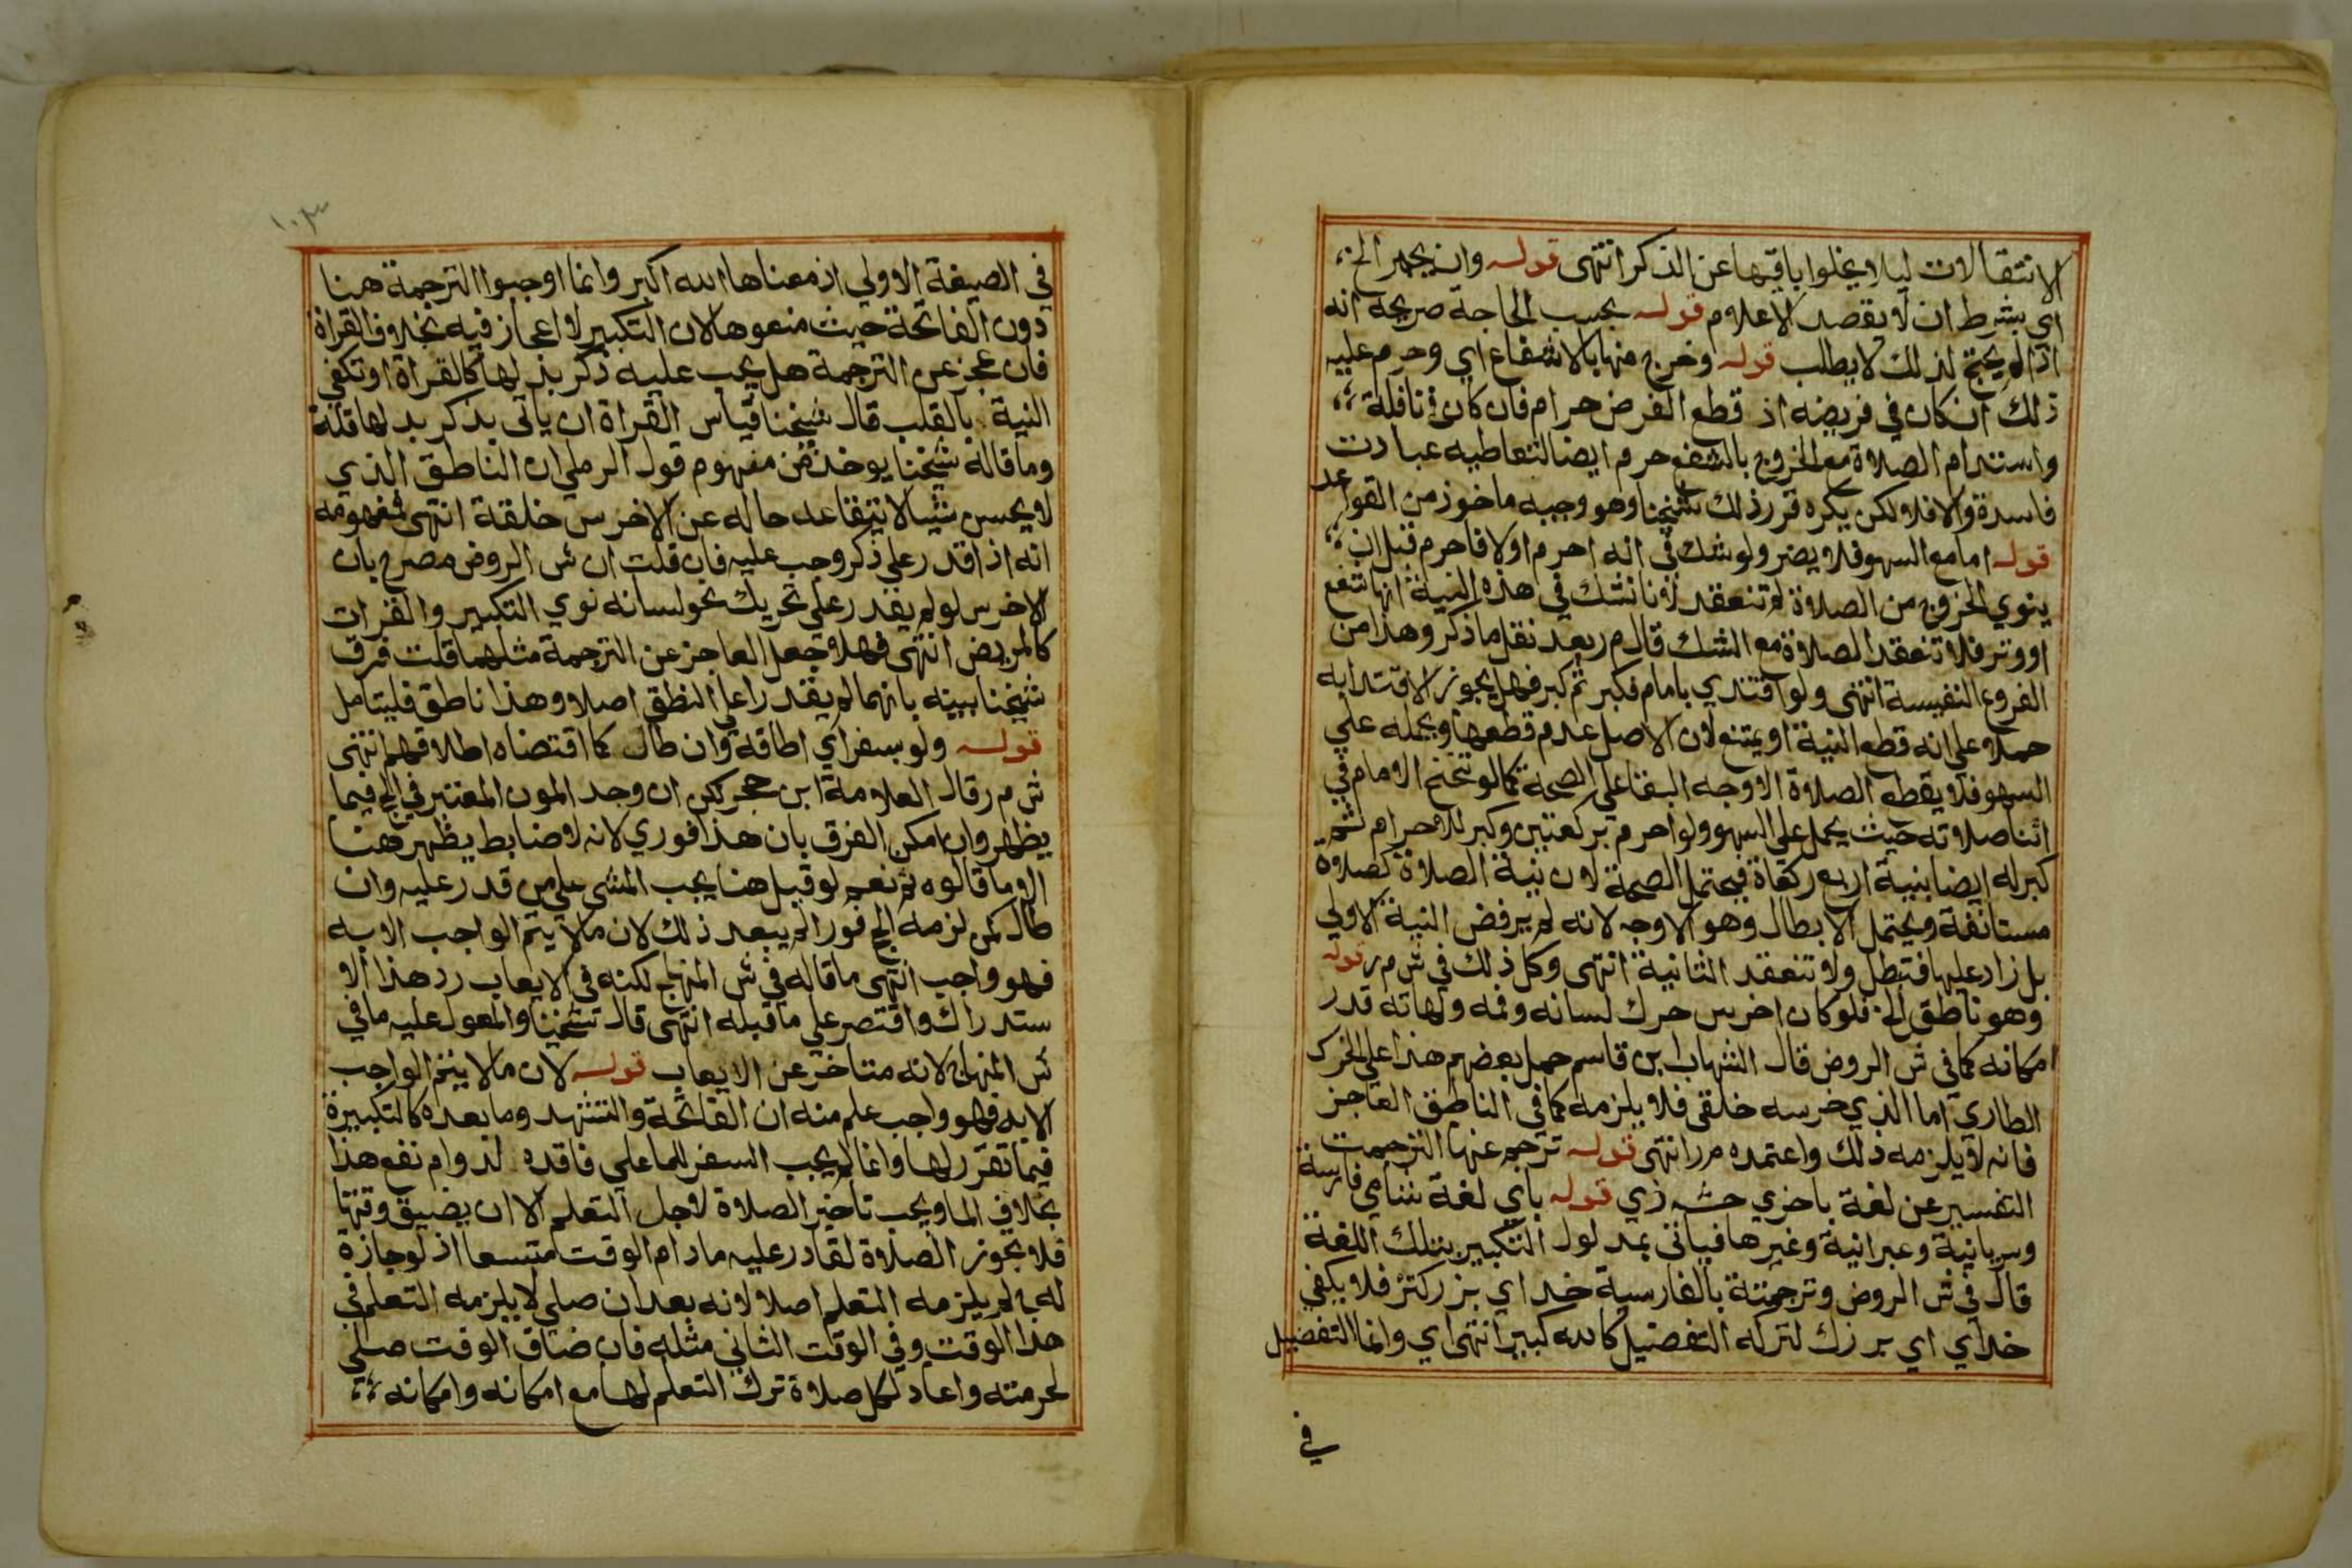 الانتقالات ليلا يخلوا باقيها عن الذكر انتهى قوله وان يجهر الخ
اي بشرط ان لا يقصد الاعلام قوله بحسب الحاجة صريحه انه
اذا لم يحتج لذلك لا يطلب قوله وخرج منها بالاشفاع اي وحرم عليه
ذلك ان كان في فريضه اذ قطع الفرض حرام فان كان في نافلة
واستدام الصلاة مع الخروج بالشفع حرم ايضا لتعاطيه عبادت
فاسدة والا فلا لكن يكره قرر ذلك شيخنا وهو وجيه ماخوذ من القواعد
قوله اما مع السهو فلا يضر ولو شك في انه احرم اولا فاحرم قبل ان
ينوي الخروج من الصلاة لم تنعقد لانا نشك في هذه النية انها شفع
او وتر فلا تنعقد الصلاة مع الشك قال م ر بعد نقل ما ذكر وهذا من
الفروع النفيسة انتهى ولو اقتدي بامام فكبر ثم كبر فهل يجوز الاقتدا به
حملا على انه قطع النية او يمتنع لان الاصل عدم قطعها ويحمله على
السهو فلا يقطع الصلاة الاوجه البقا على الصحة كما لو تنحنح الامام في
اثنا صلاته حيث يحمل على السهو ولو احرم بركعتين وكبر للاحرام ثم
كبر له ايضا بنية اربع ركعاة فيحتمل الصحة لان نية الصلاة كصلاة
مستانفة ويحتمل الابطال وهو الاوجه لانه لم يرفض النية الاولي
بل زاد عليها فتبطل ولا تنعقد الثانية انتهى وكل ذلك في ش م ر قوله
وهو ناطق الخ فلو كان اخرس حرك لسانه وفمه ولهاته قدر
امكانه كما في ش الروض قال الشهاب ابن قاسم حمل بعضهم هذا على الخرس
الطاري اما الذي خرسه خلقي فلا يلزمه كما في الناطق العاجز
فانه لا يلزمه ذلك واعتمده م ر انتهى قوله ترجم عنها الترجمت
التفسير عن لغة باخري حشه زي قوله باي لغة شا من فارسة
وسريانية وعبرانية وغيرها فياتى بمدلول التكبير بتلك اللغة
قال في ش الروض وترجمتة بالفارسية خداي بزركتر فلا يكفي
خداي اي بزرك لتركه التفضيل كالله كبير انتهى اي وانما التفضيل
في
١٠٣
في الصيغة الاولي اذ معناها الله اكبر وانما اوجبوا الترجمة هنا
دون الفاتحة حيث منعوها لان التكبير لا اعجاز فيه بخلاف القراة
فان عجز عن الترجمة هل يجب عليه ذكر بدلها كالقراة او تكفي
النية بالقلب قال شيخنا قياس القراة ان ياتى بذكر بدلها قلة
وما قاله شيخنا يوخذ من مفهوم قول الرملي ان الناطق الذي
لا يحسن شيا لا يتقاعد حاله عن الاخرس خلقة انتهى فمفهومه
انه اذا قدر على ذكر وجب عليه فان قلت ان ش الروض مصرح بان
الاخرس لو لم يقدر على تحريك نحو لسانه نوي التكبير والقرات
كالمريض انتهى فهلا جعل العاجز عن الترجمة مثلهما قلت فرق
شيخنا بينه بانهما لم يقدرا على النطق اصلا وهذا ناطق فليتامل
قوله ولو بسفر اي اطاقة وان طال كما اقتضاه اطلاقهم انتهى
ش م ر قال العلامة ابن حجر لكن ان وجد المون المعتبر في الحج فيما
يظهر وان امكن الفرق بان هذا فوري لانه لا ضابط يظهر هنا
الا ما قالوه ثم نعم لو قيل هنا يجب المشي على من قدر عليه وان
طال كمن لزمه الحج فورا لم يبعد ذلك لان ما لا يتم الواجب الا به
فهو واجب انتهى ما قاله في ش المنهاج لكنه في الايعاب رد هذا الا
ستدراك واقتصر على ما قبله انتهى قال شيخنا والمعول عليه ما في
ش المنهاج لانه متاخر عن الايعاب قوله لان ما لا يتم الواجب
الا به فهو واجب علم منه ان الفاتحة والتشهد وما بعده كالتكبيرة
فيما تقرر لها وانما لم يجب السفر للما على فاقده لدوام نفع هذا
بخلاف الما ويجب تاخير الصلاة لاجل التعلم الا ان يضيق وقتها
فلا تجوز الصلاة لقادر عليه مادام الوقت متسعا اذ لو جازة
له لم يلزمه التعلم اصلا لانه بعد ان صلي لا يلزمه التعلم في
هذا الوقت وفي الوقت الثاني مثله فان ضاق الوقت صلي
لحرمته واعاد لكل صلاة ترك التعلم لها مع امكانه وامكانه